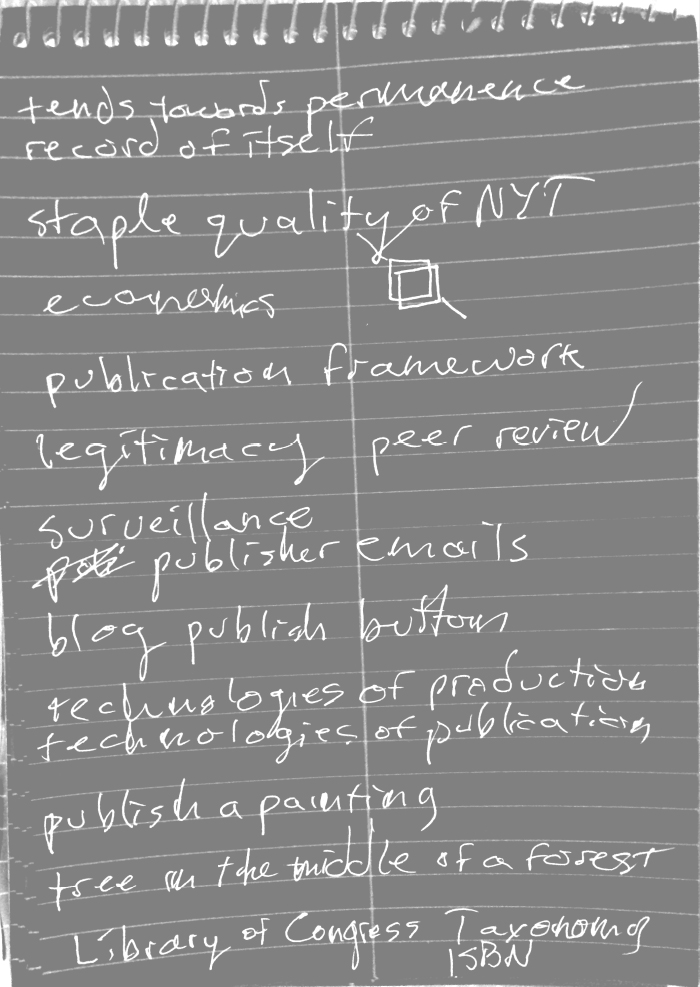 tends towards permanence
record of itself
staple quality of NYT
economics
publication framework
legitimacy peer review
surveillance
publisher emails
blog publish button
technologies of production
technologies of publication
publish a painting
tree in the middle of a forest
Library of Congress Taxonomy
ISBN